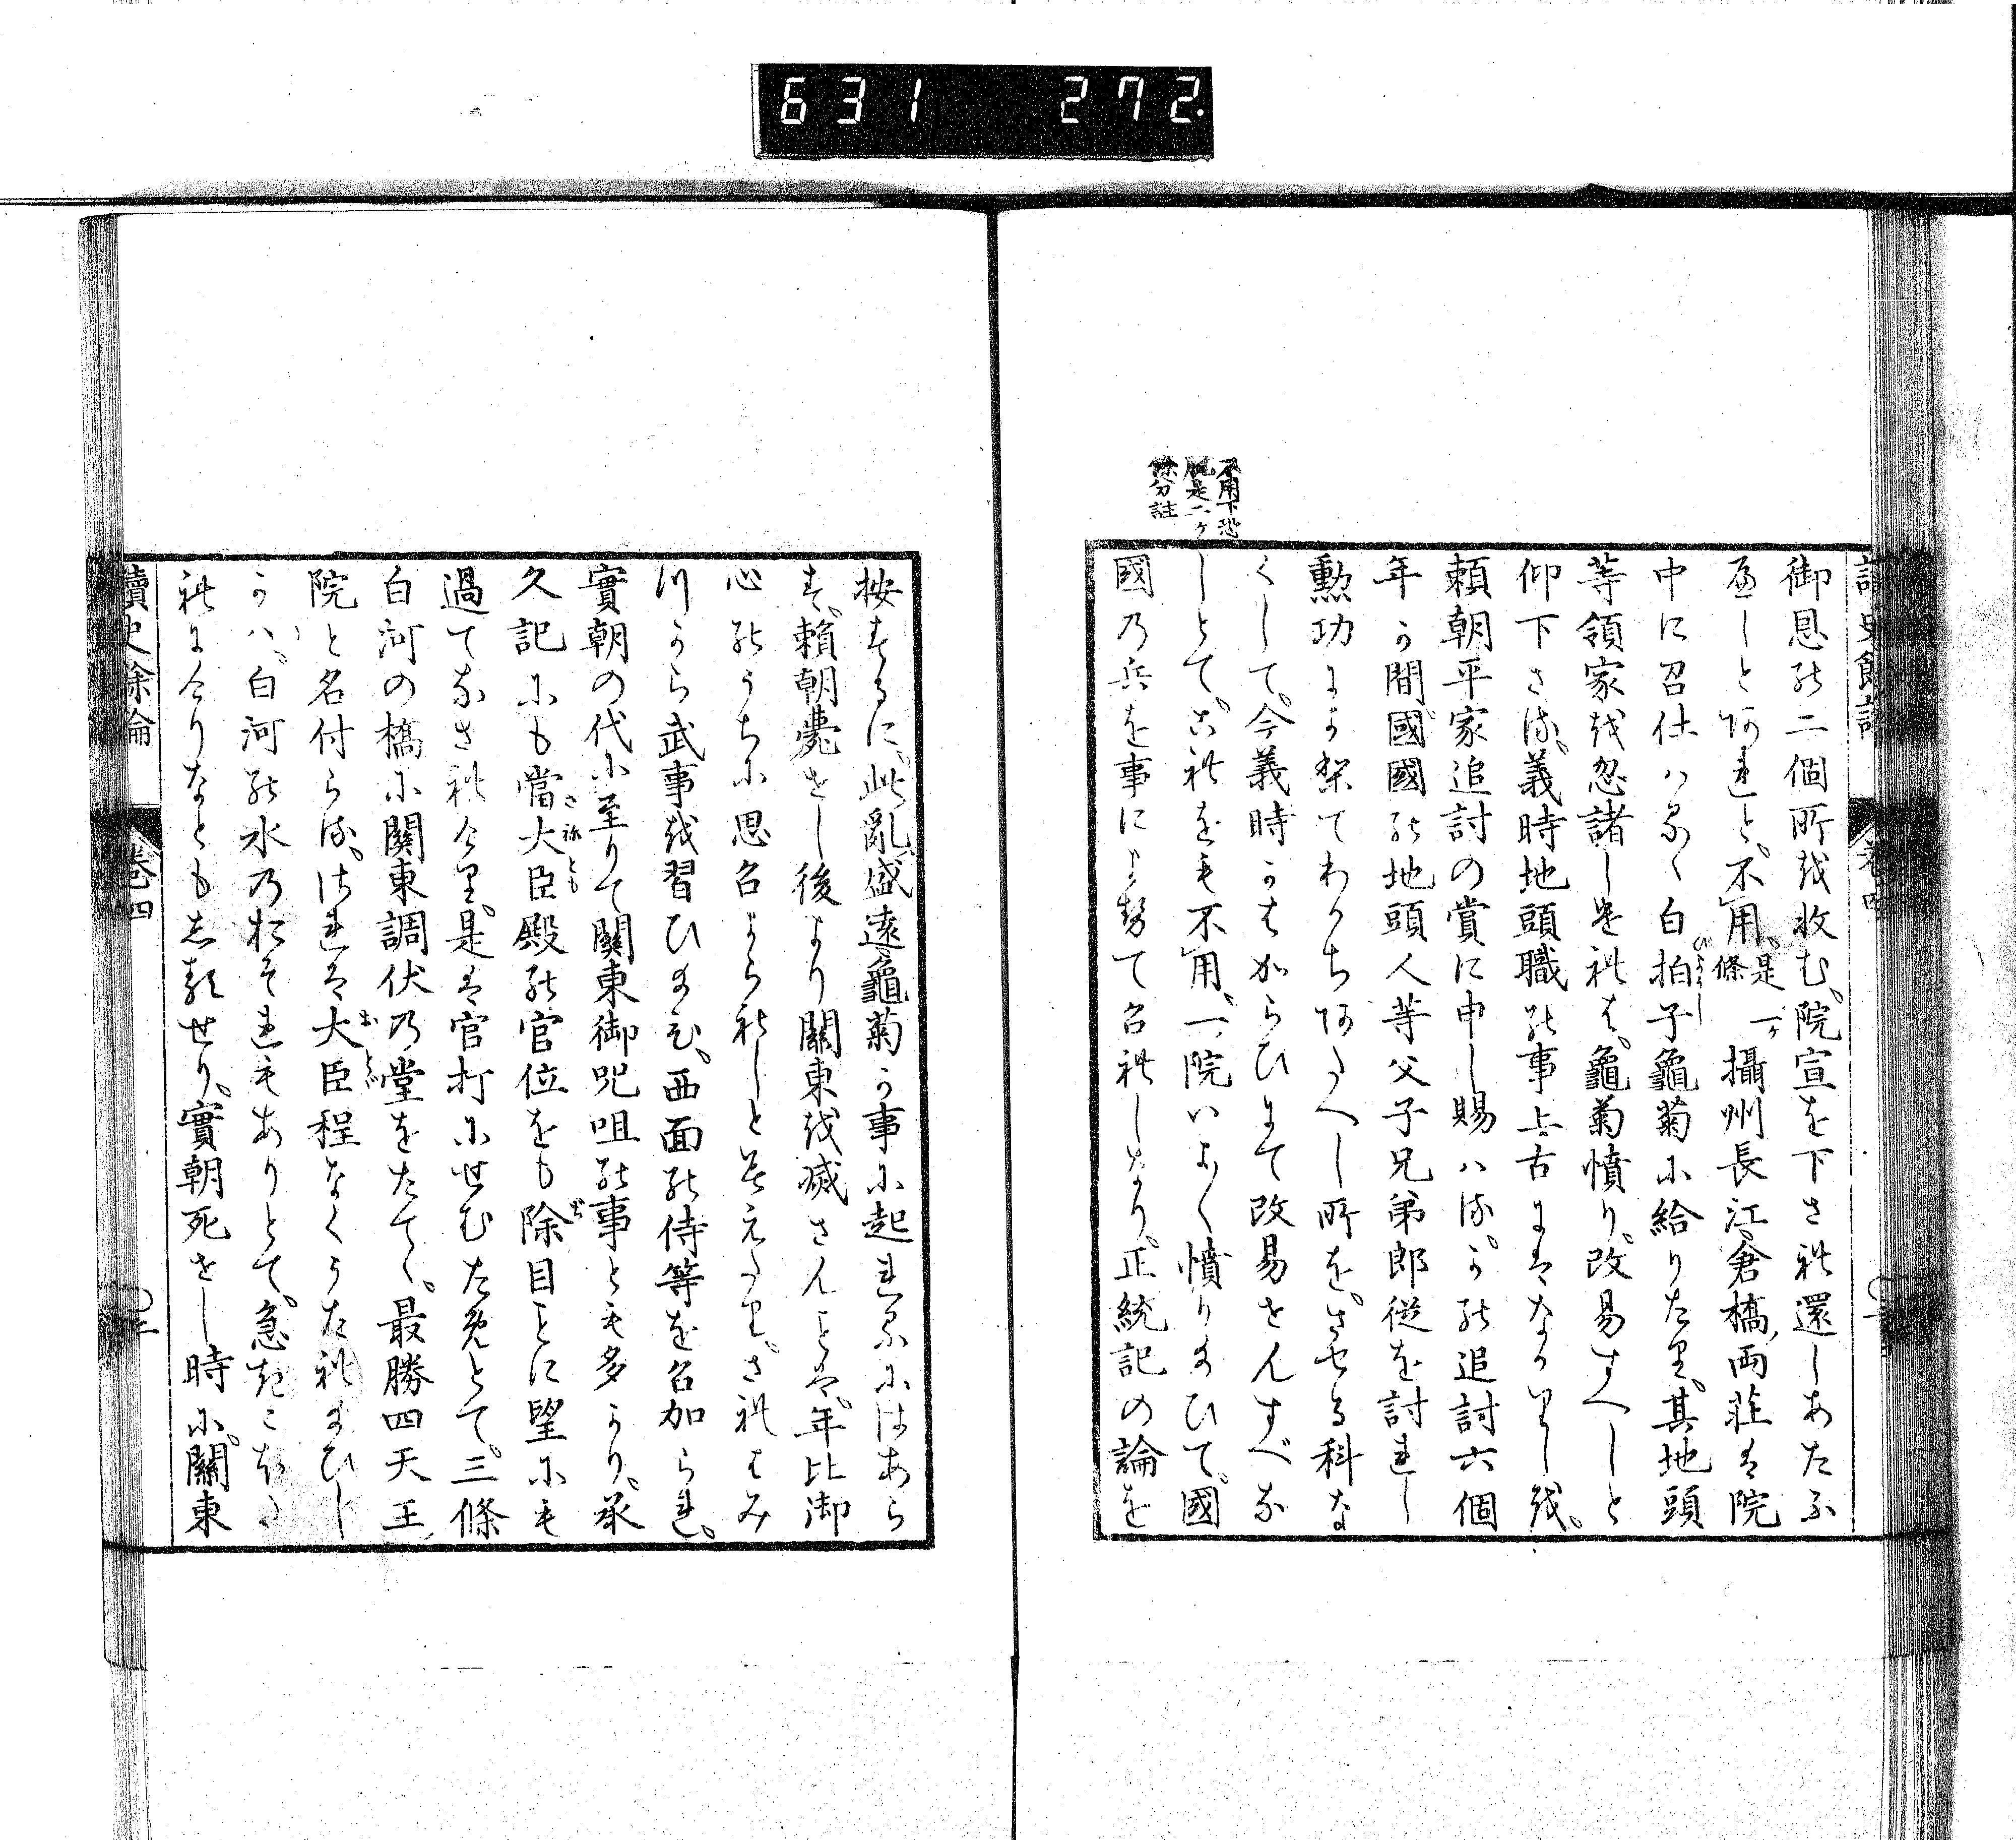 631 272
不用下恐
脱是一ケ
條分註
御恩の二個所を收む。院宣を下され還しあたふ
へしとあれと。不用。是一ケ條 攝州長江倉橋両莊は院
中に召仕ハるく白拍子龜菊に給りたり。其地頭
等領家を忽諸しけれは。龜菊憤り。改易すへしと
仰下さる。義時地頭職の事上古はなかりしを。
頼朝平家追討の賞に申し賜ハる。かの追討六個
年か間國國の地頭人等父子兄弟郎従を討れし
勲功によりてわかちあたへし所を。させる科な
くして。今義時かはからひにて改易せんすべな
しとて。これをも不用。一院いよく憤りまひて。國
國乃兵を事によせて召れしなり。正統記の論を
按するに。此亂盛遠龜菊か事に起れるにはあら
す。頼朝薨せし後より關東を滅さんことは。年比御
心のうちに思召よられしと見えたり。されはみ
つから武事を習ひまひ。西面の侍等を召加られ。
實朝の代に至りて關東御咒咀の事とも多かり。承
久記にも當大臣殿の官位をも除目ことに望にも
過てなされけり。是は官打にせむためとて。三條
白河の橋に關東調伏乃堂をたてく。最勝四天王
院と名付らる。されは大臣程なくうたれまひし
かハ。白河の水乃おそれもありとて。急きこほた
れにけりなとともしるせり。實朝死せし時に。關東
讀史餘論 卷四